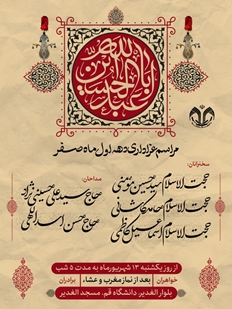 یا اباعبدالله الحسین
مراسم عزاداری دهه اول ماه صفر
سخنرانان:
حجت الاسلام سید حسین مومنی
حجت الاسلام حامد کاشانی
حجت الاسلام
مداحان:
حاج سید علی حسینی نژاد
حاج حسن اسداللهی
از روز یکشنبه ۱۳ شهریورماه به مدت ۵ شب
خواهران بعد از نماز مغرب و عشاء برادران
بلوار الغدیر، دانشگاه قم، مسجد الغدیر